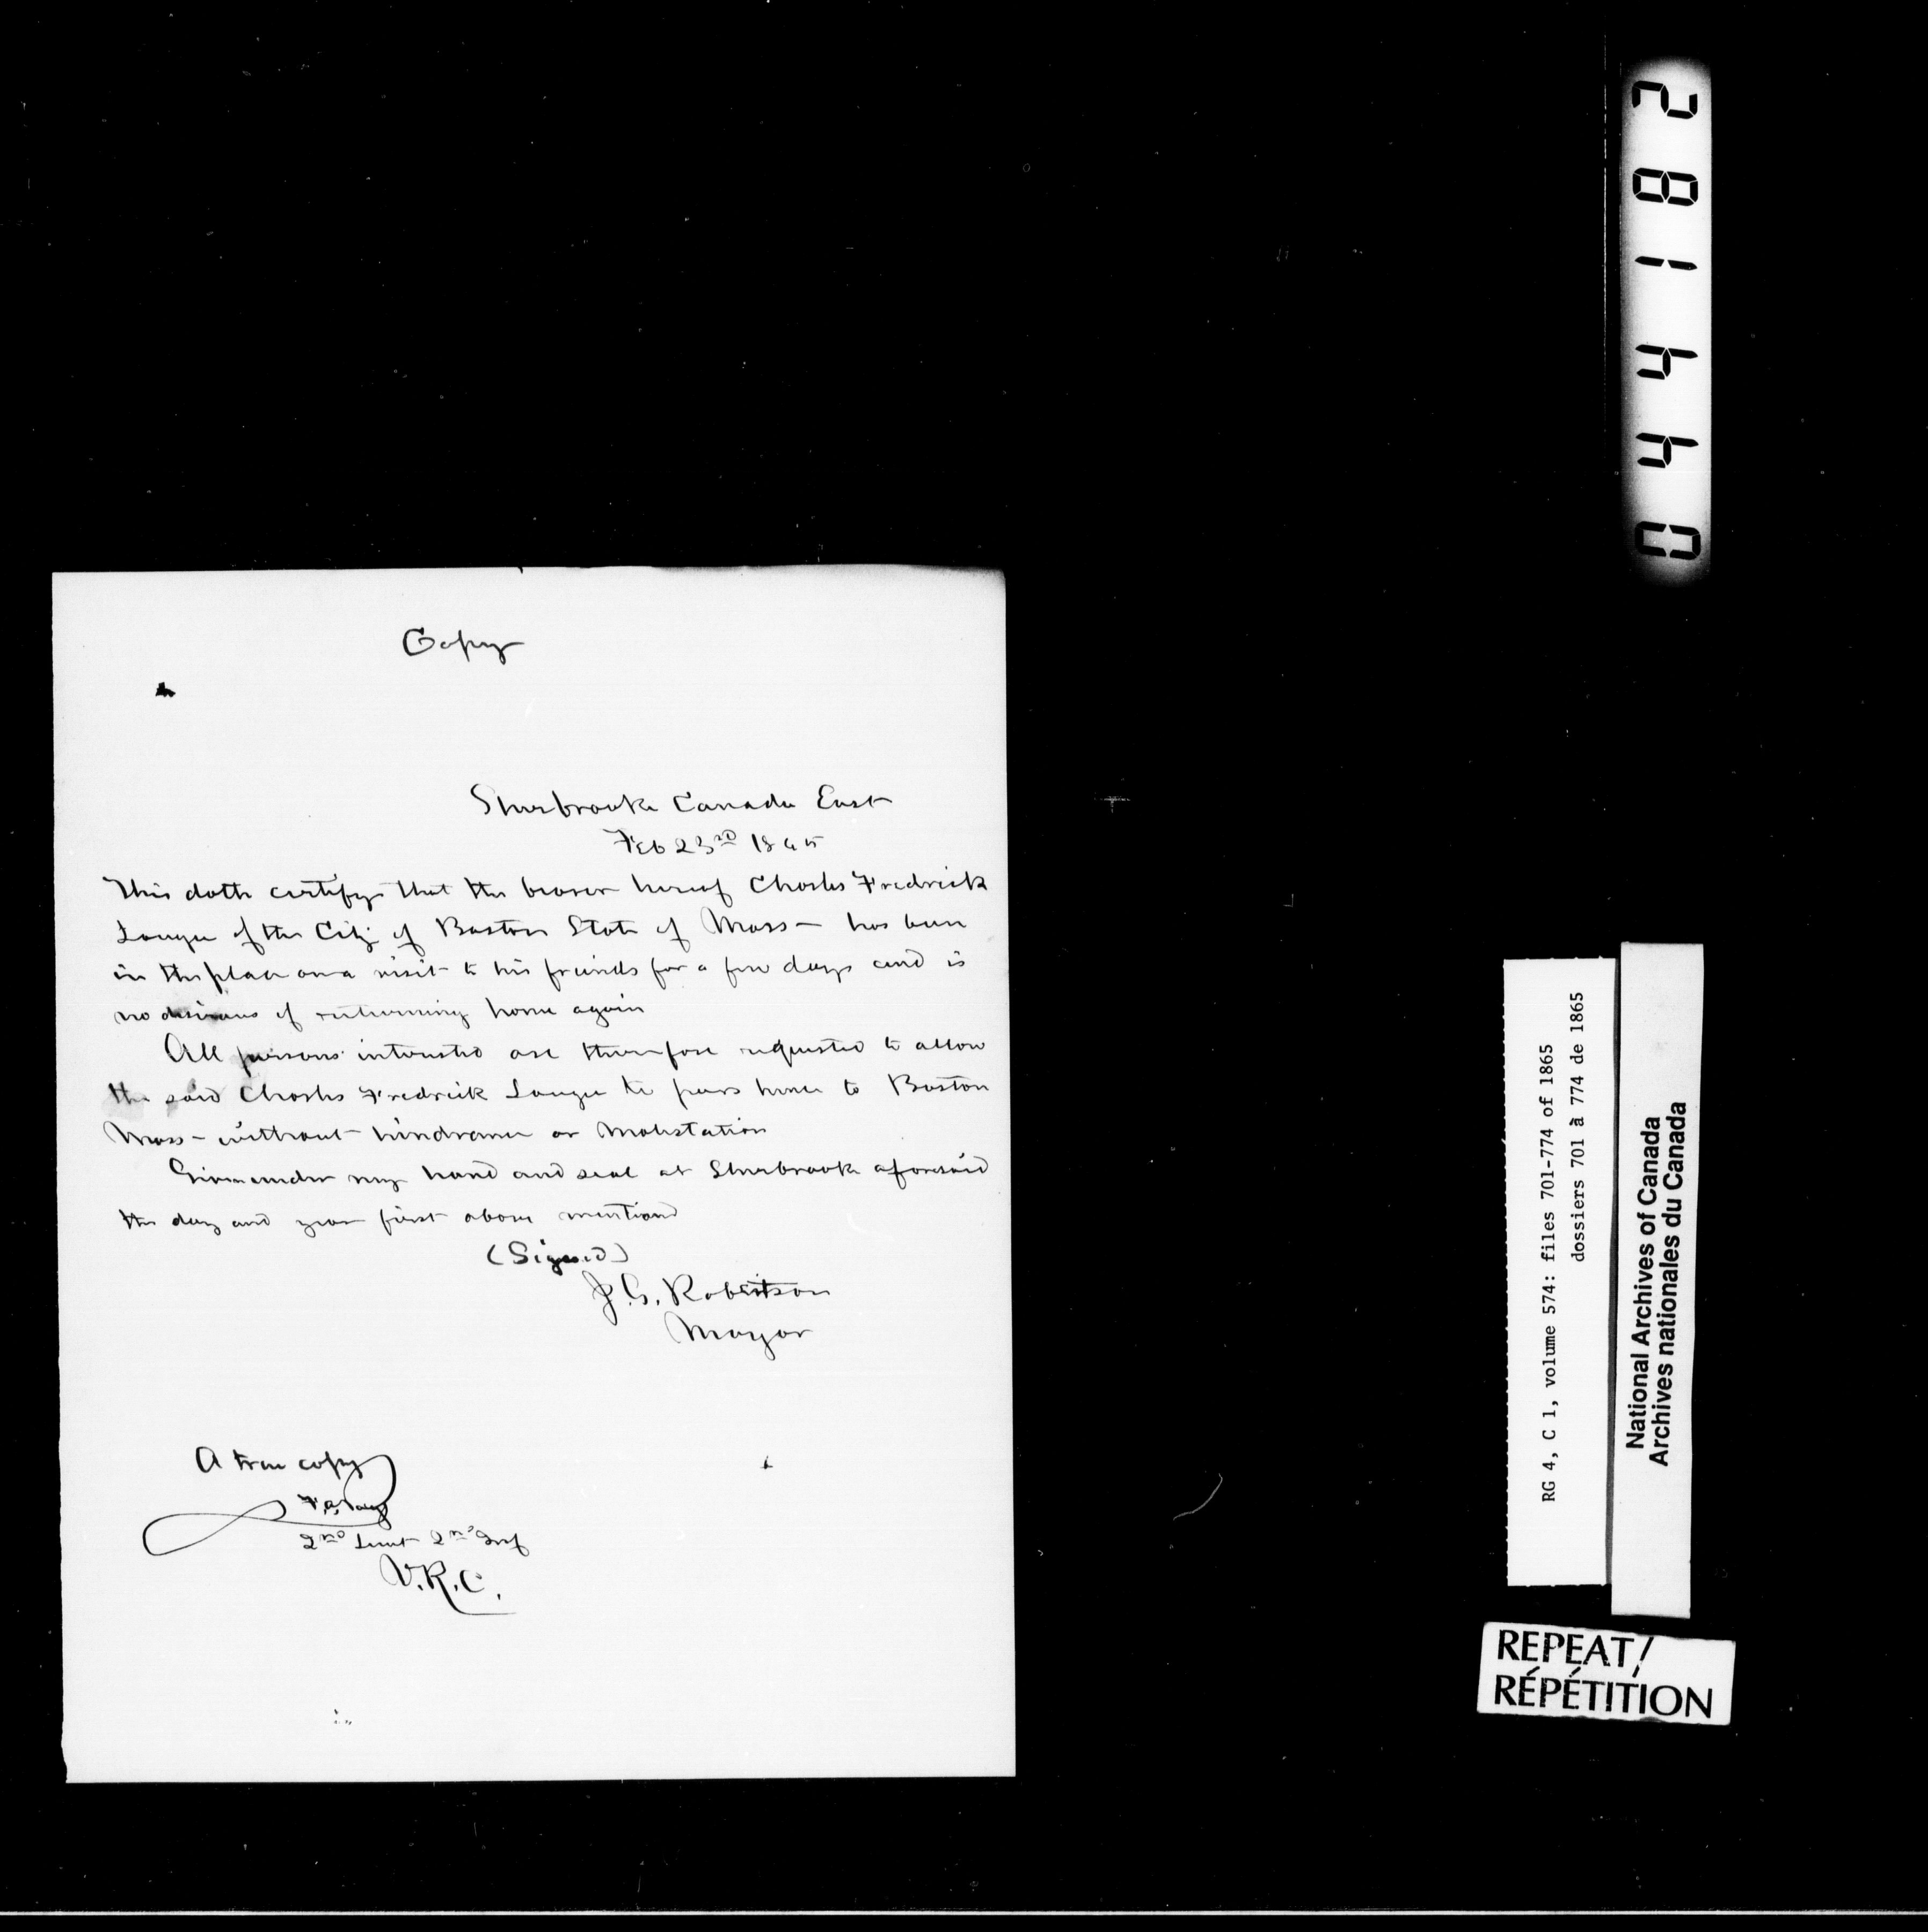 Copy
Sherbrooke Canada East
Feb 23rd 1865
This doth certify that the bearer hereof Charles Fredrick
Lange of the City of Boston State of Mass - has been
in this place on a visit to his friends for a few days and is
no desirous of returning home again
All persons interested are therefore requested to allow
the said Charles Fredrick Lange to pass hence to Boston
Mass - without hindrance or molestation
Given under my hand and seal at Sherbrooke aforesaid
the day and year first above mentiond
(Signed)
J. G. Robertson
Mayor
A true copy
2nd Lieut 2nd
V.R.C.
281440
RG 4, C 1, volume 574: files 701-774 of 1865
dossiers 701 à 774 de 1865
National Archives of Canada
Archives nationales du Canada
REPEAT/
RÉPÉTITION